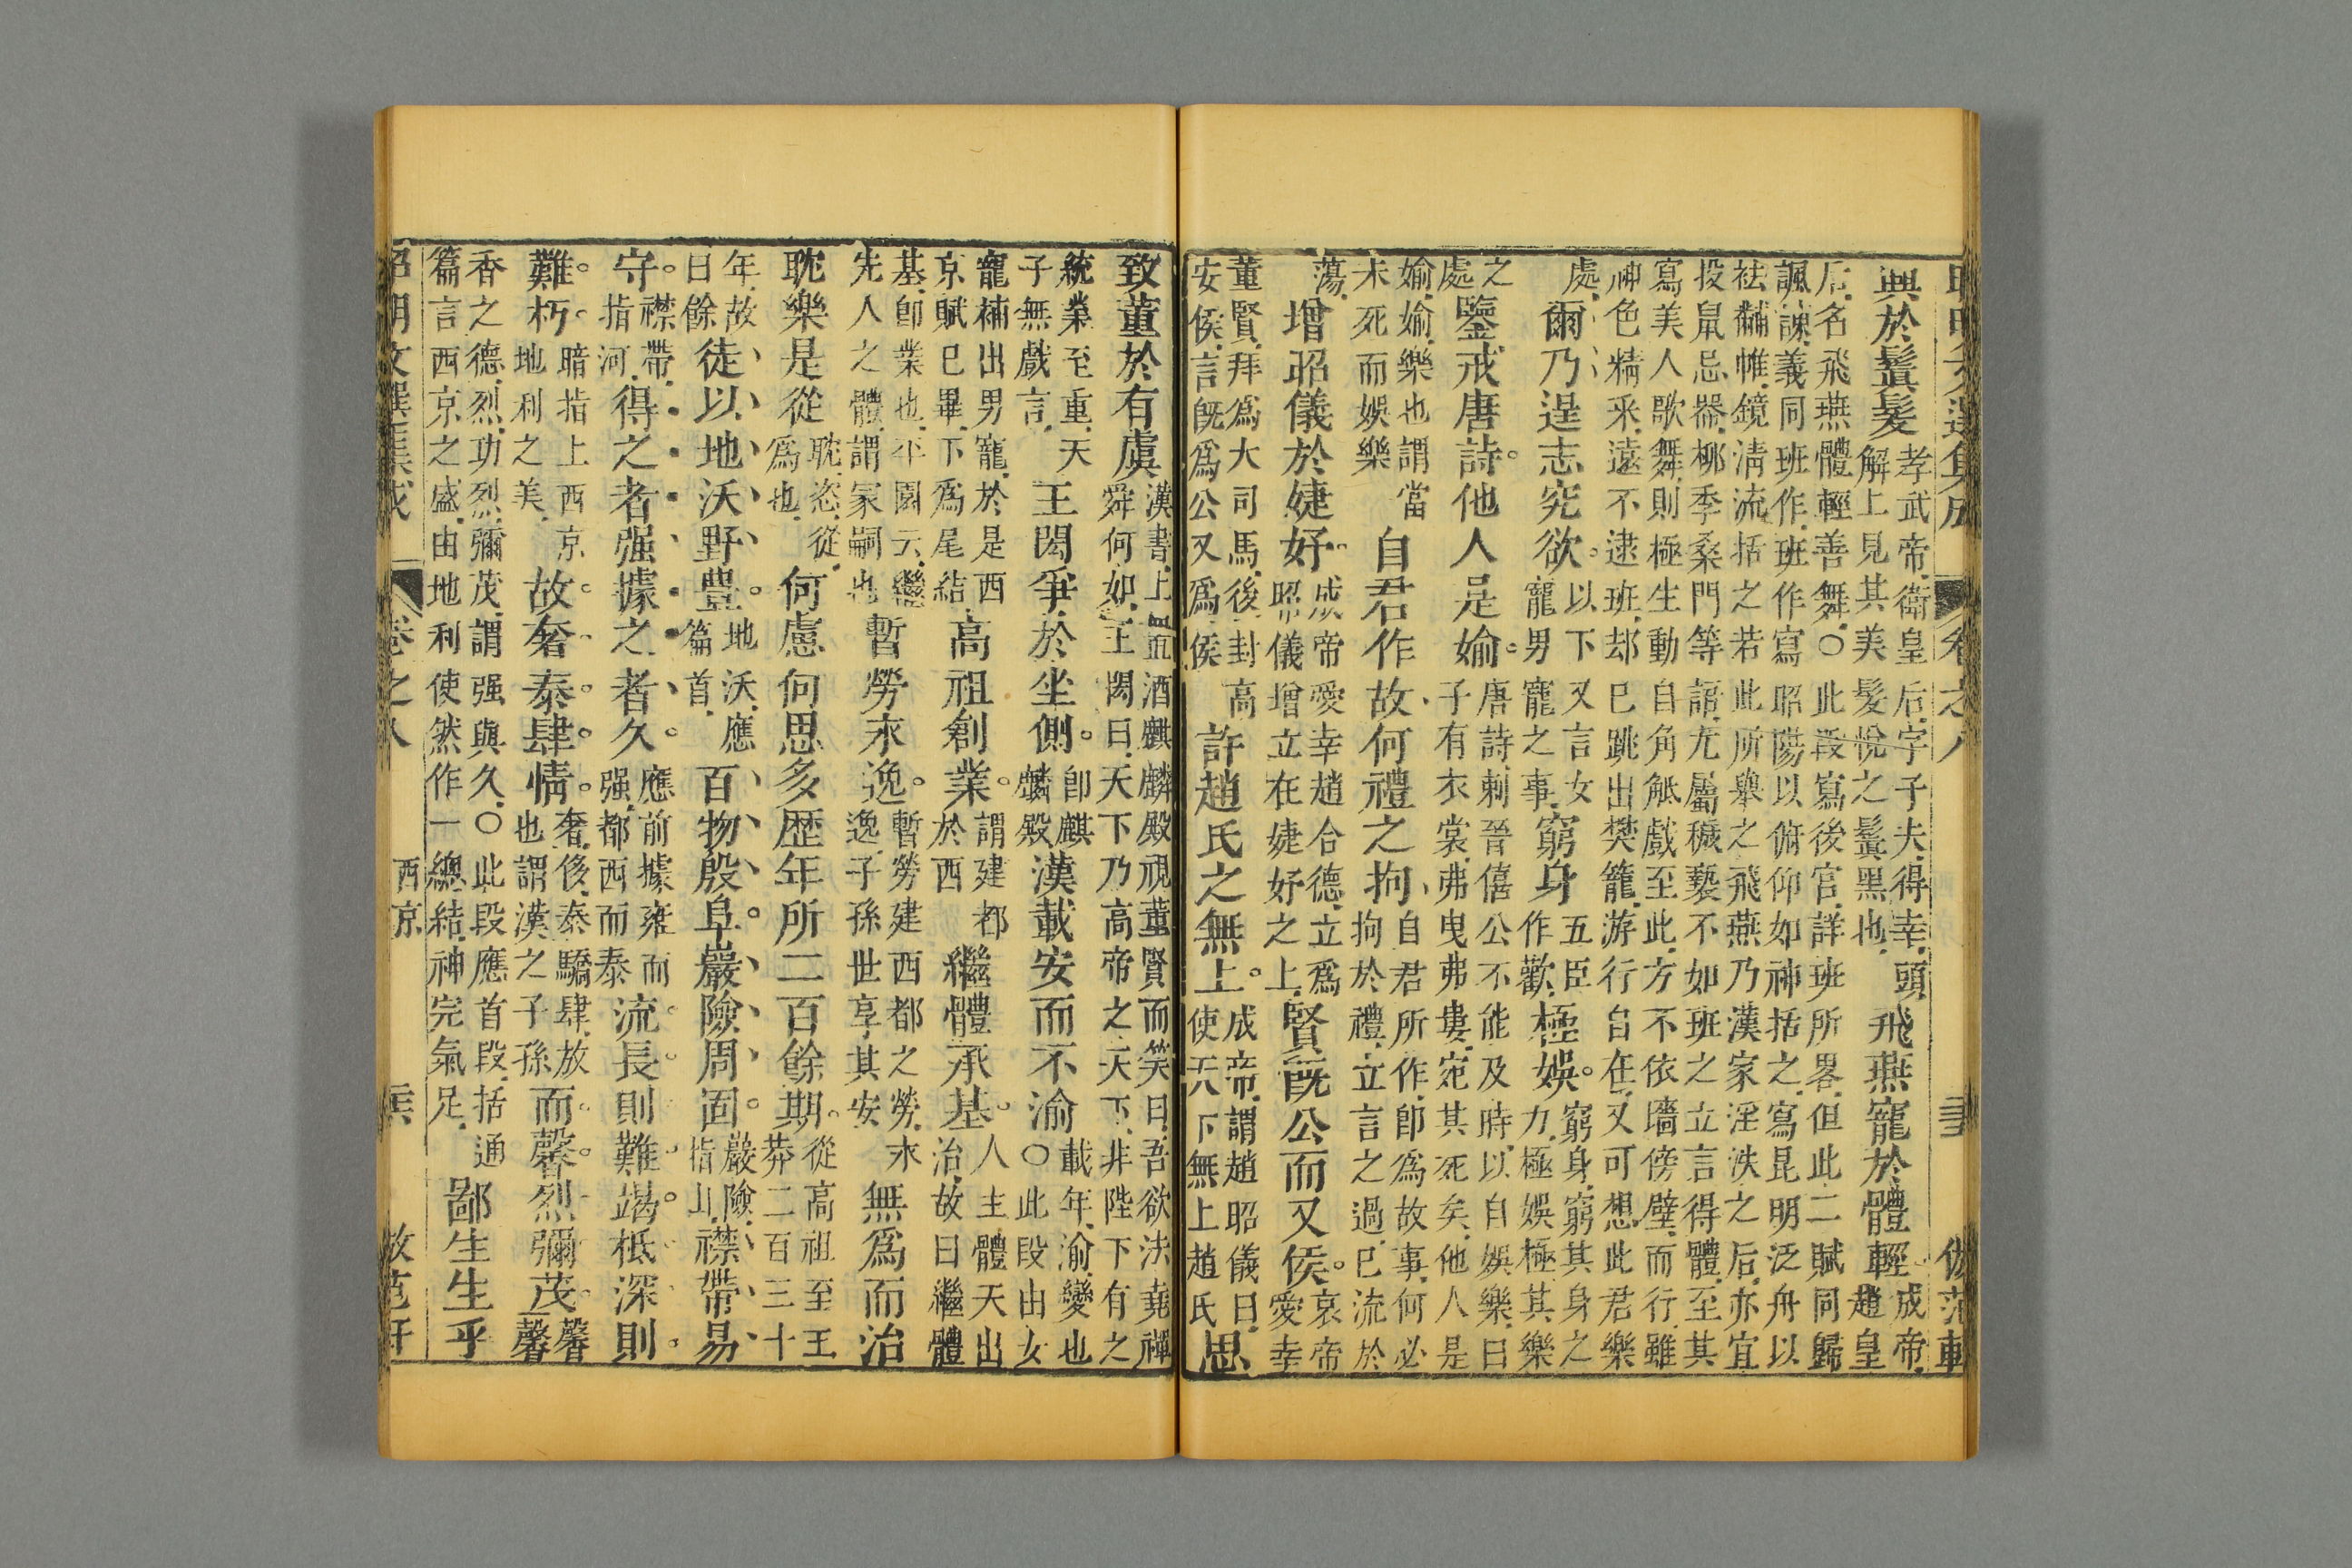 昭明文選集成 卷之八 倣范軒
興於鬒髮孝武帝衛皇后字子夫得幸頭解上見其美髮悅之鬒黑也飛燕寵於體輕成帝趙皇
后名飛燕體輕善舞○此段寫後宮詳班所畧但此二賦同歸
諷諫義同班作班作寫昭陽以俯仰如神括之寫昆明泛舟以
袪黼帷鏡清流括之若此所舉之飛燕乃漢家淫泆之后亦宜
投鼠忌器柳季桑門等語尤屬穢褻不如班之立言得體至其
寫美人歌舞則極生動自角觝戲至此方不依墻傍壁而行雖
神色精采遠不逮班却已跳出樊籠游行自在又可想此君樂
處爾乃逞志究欲以下又言女寵男寵之事窮身五臣作歡極娛窮身窮其身之力極娛極其樂
之處鑒戒唐詩他人是媮唐詩刺晉僖公不能及時以自娛樂曰子有衣裳弗曳弗婁宛其死矣他人是
媮媮樂也謂當未死而娛樂自君作故何禮之拘自君所作即為故事何必拘於禮立言之過已流於
蕩增昭儀於婕妤成帝愛幸趙合德立為昭儀增立在婕妤之上賢既公而又侯哀帝愛幸
董賢拜為大司馬後封高安侯言既為公又為侯許趙氏之無上成帝謂趙昭儀曰使天下無上趙氏思
致董於有虞漢書上置酒麒麟殿視董賢而笑曰吾欲法堯禪舜何如王閎曰天下乃高帝之天下非陛下有之
統業至重天子無戲言王閎爭於坐側即麒麟殿漢載安而不渝載年渝變也○此段由女
寵補出男寵於是西京賦已畢下為尾結高祖創業謂建都於西繼體承基人主體天出治故曰繼體
基即業也平園云繼先人之體謂冢嗣也暫勞永逸暫勞建西都之勞永逸子孫世享其安無為而治
耽樂是從耽恣從為也何慮何思多歷年所二百餘期從高祖至王莽二百三十
年故曰餘徒以地沃野豐地沃應篇首百物殷阜巖險周固巖險指山襟帶易
守襟帶指河得之者强據之者久應前據雍而强都西而泰流長則難竭柢深則
難朽暗指上西京地利之美故奢泰肆情奢侈泰驕肆放也謂漢之子孫而馨烈彌茂馨馨
香之德烈功烈彌茂謂强與久○此段應首段括通篇言西京之盛由地利使然作一總結神完氣足鄙生生乎
昭明文選集成 卷之八 西京 倣范軒